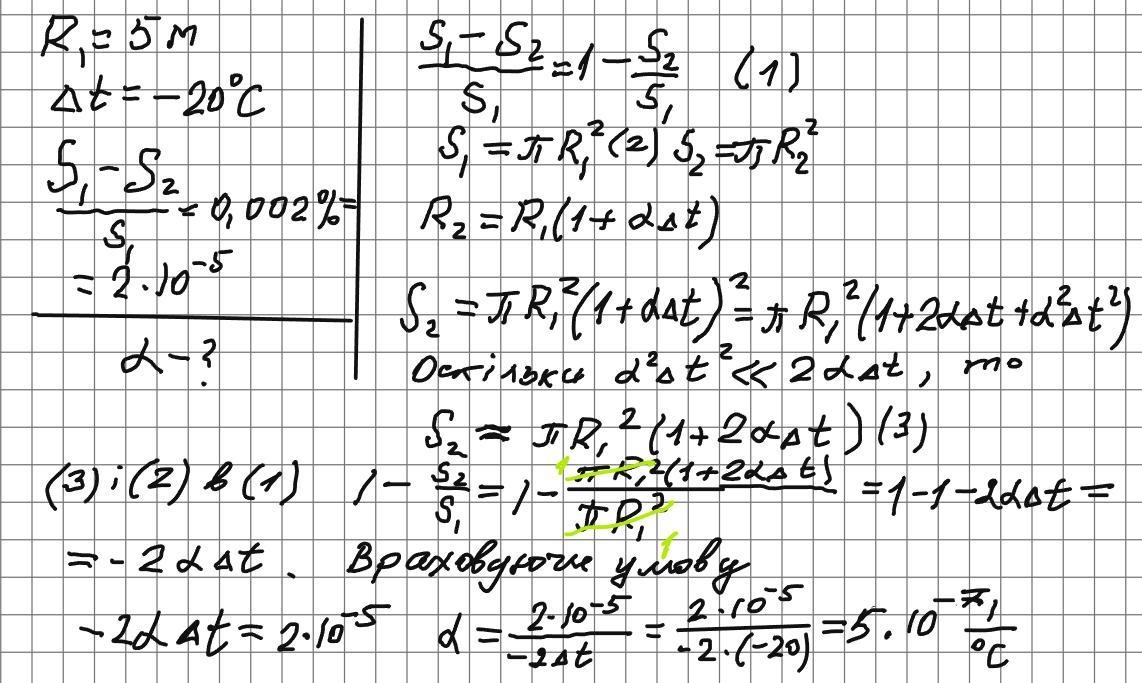 R₁ = 5 м
Δt = -20°C
(S₁ - S₂)/S₁ = 0,002% =
= 2·10⁻⁵
α - ?
(S₁ - S₂)/S₁ = 1 - S₂/S₁ (1)
S₁ = πR₁² (2) S₂ = πR₂²
R₂ = R₁(1 + αΔt)
S₂ = πR₁²(1 + αΔt)² = πR₁²(1 + 2αΔt + α²Δt²)
Оскільки α²Δt² << 2αΔt, то
S₂ ≈ πR₁²(1 + 2αΔt) (3)
(3) і (2) в (1) 1 - S₂/S₁ = 1 - πR₁²(1 + 2αΔt)/πR₁² = 1 - 1 - 2αΔt =
= -2αΔt. Враховуючи умову
-2αΔt = 2·10⁻⁵ α = 2·10⁻⁵/(-2Δt) = 2·10⁻⁵/(-2·(-20)) = 5·10⁻⁷ 1/°C